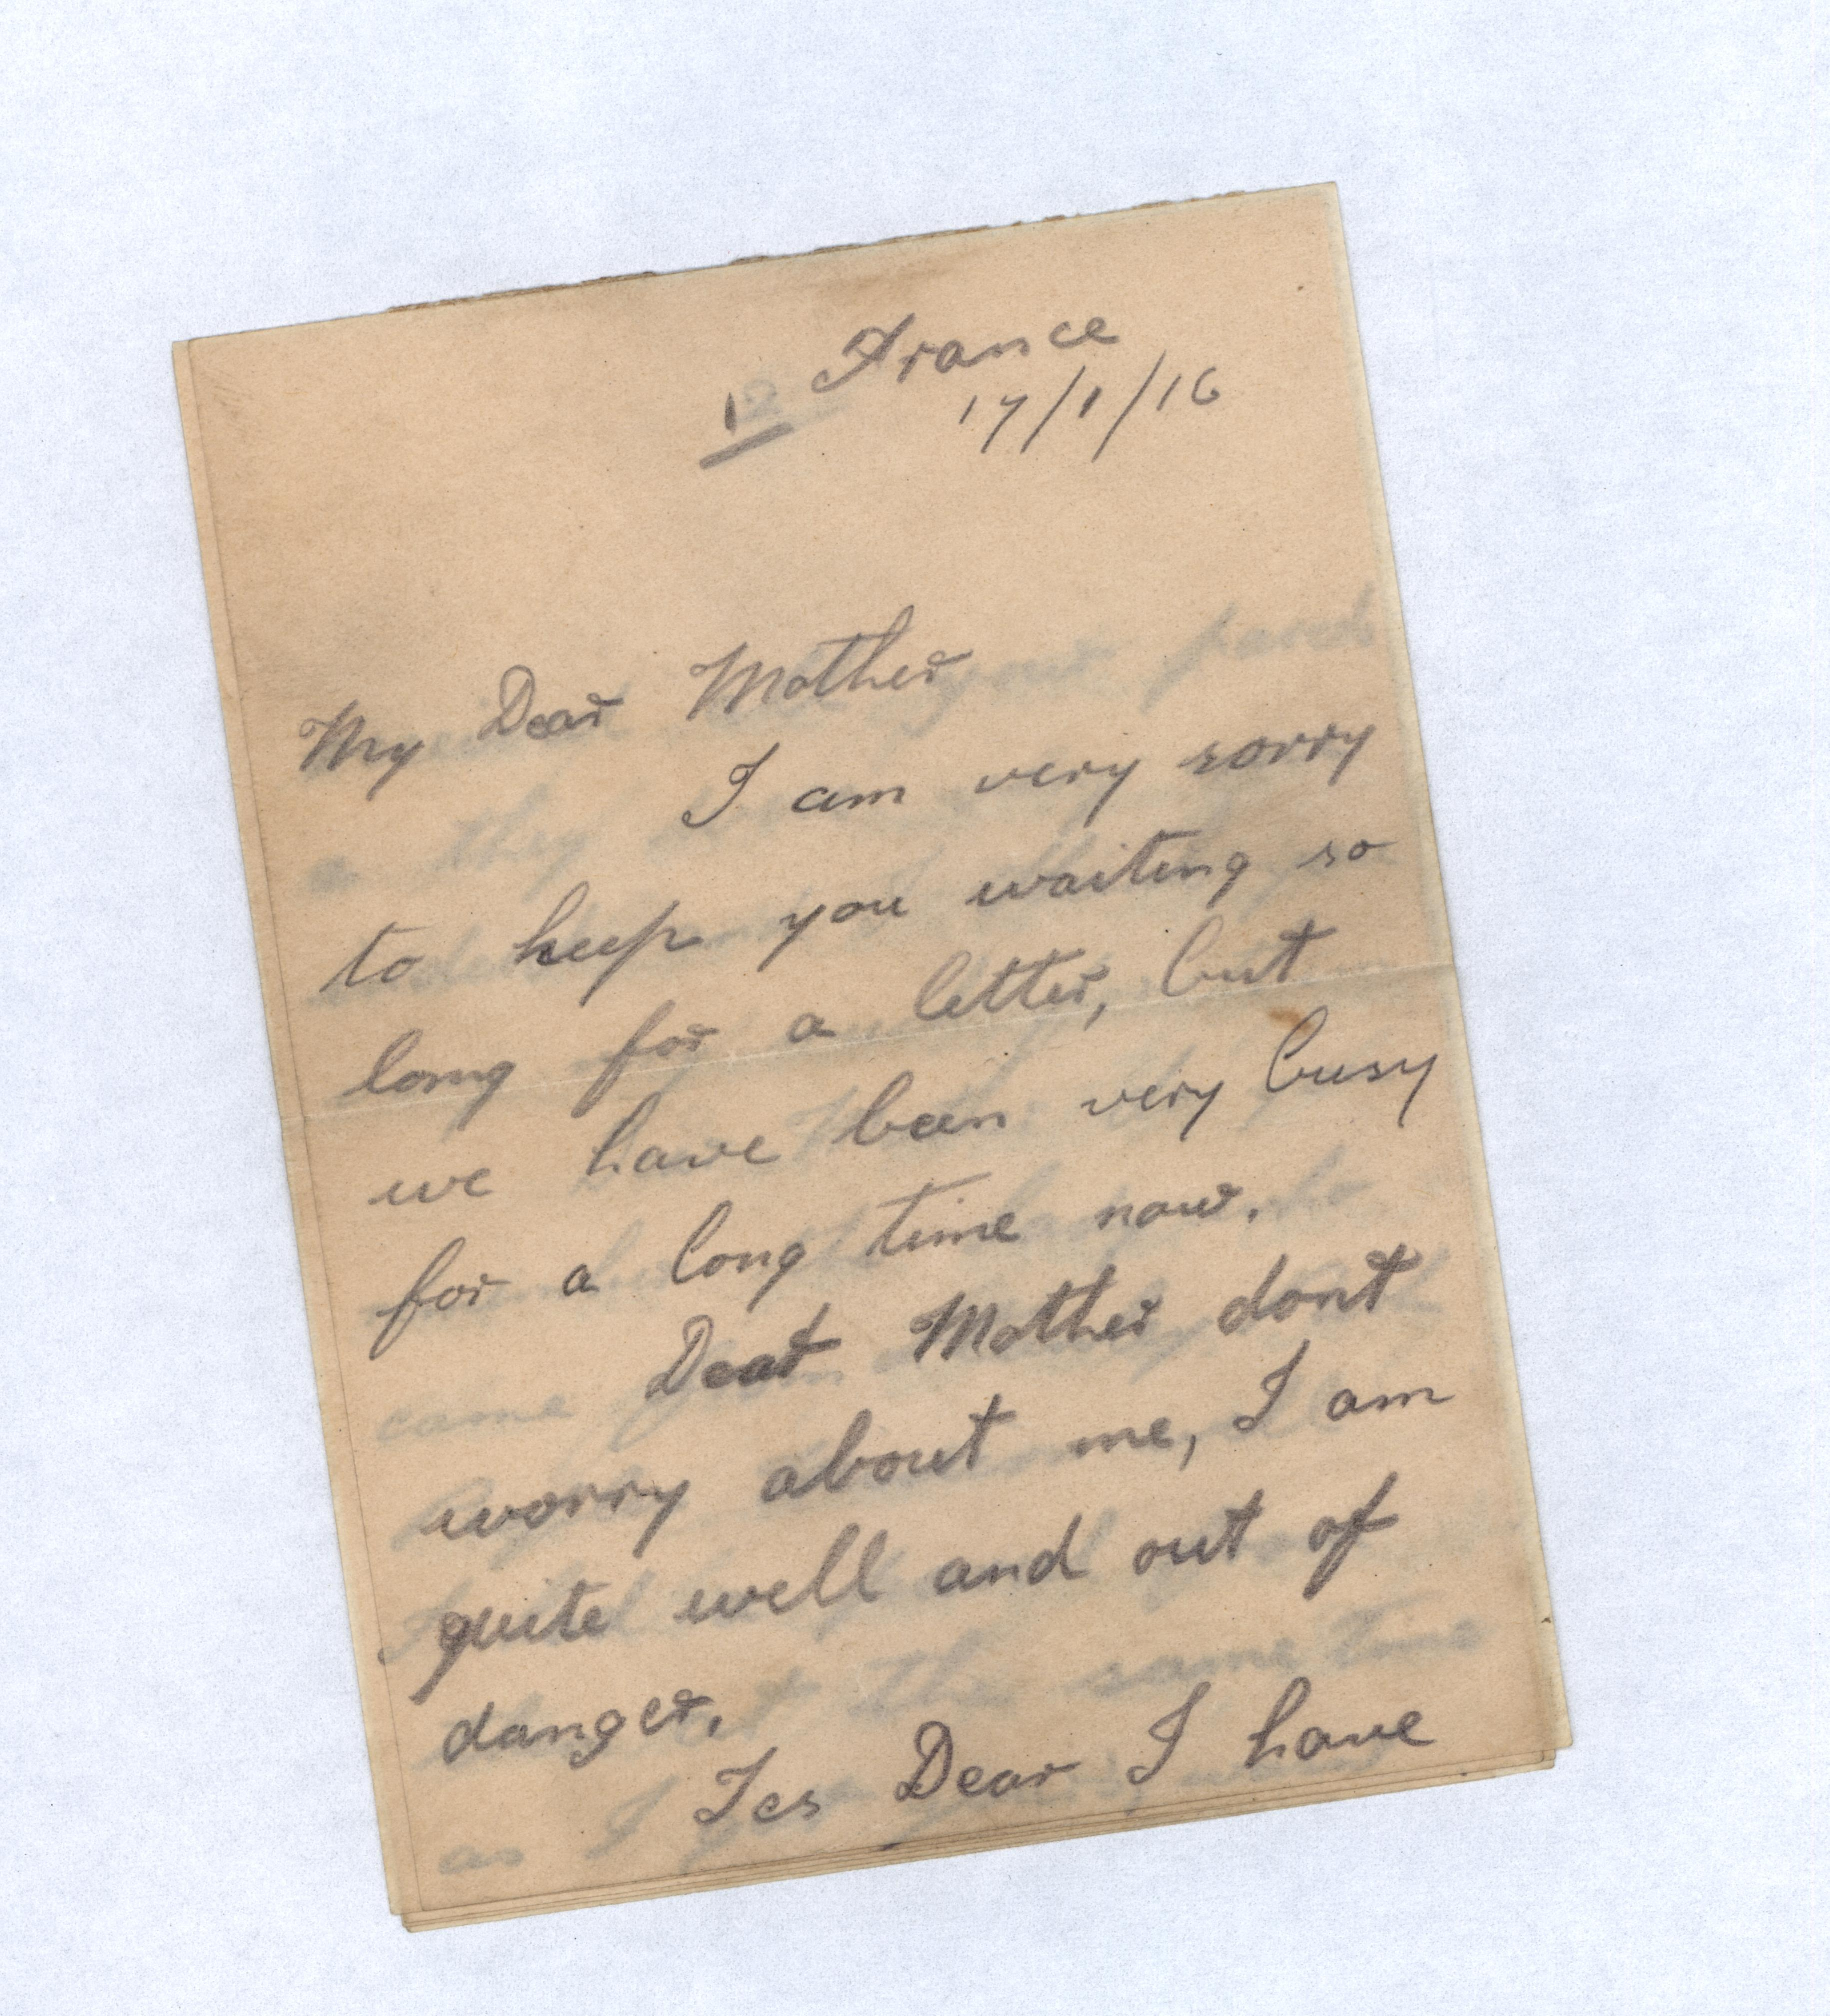 France
1 17/1/16
My Dear Mother
I am very sorry
to keep you waiting so
long for a letter, but
we have been very busy
for a long time now.
Dear Mother dont
worry about me, I am
quite well and out of
danger.
Yes Dear I have